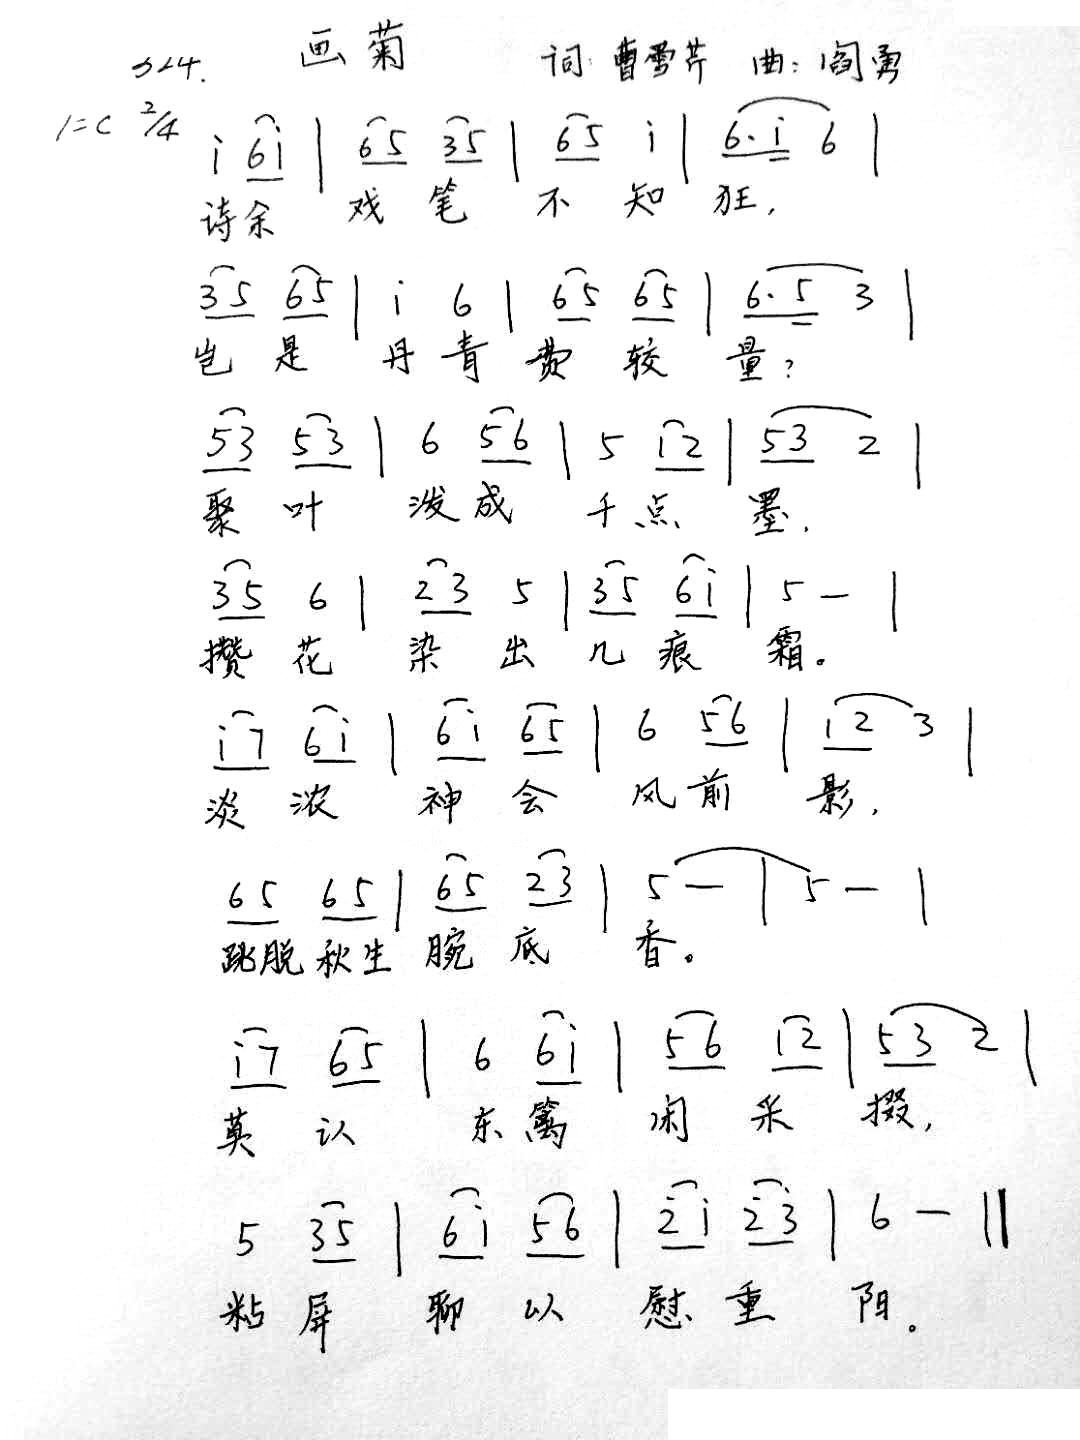 324. 画菊 词:曹雪芹 曲:阎勇
1=C 2/4 i 6i | 65 35 | 65 i | 6.i 6 |
诗余 戏笔 不知狂,
35 65 | i 6 | 65 65 | 6.5 3 |
岂是 丹青 费较量?
53 53 | 6 56 | 5 i2 | 53 2 |
聚叶 泼成 千点墨,
35 6 | 23 5 | 35 6i | 5 — |
攒花 染出 几痕霜。
i7 6i | 6i 65 | 6 56 | i2 3 |
淡浓 神会 风前影,
65 65 | 65 23 | 5 — | 5 — |
跳脱秋生 腕底香。
i7 65 | 6 6i | 56 i2 | 53 2 |
莫认 东篱 闲采掇,
5 35 | 6i 56 | 2i 23 | 6 — ||
粘屏 聊以 慰重阳。